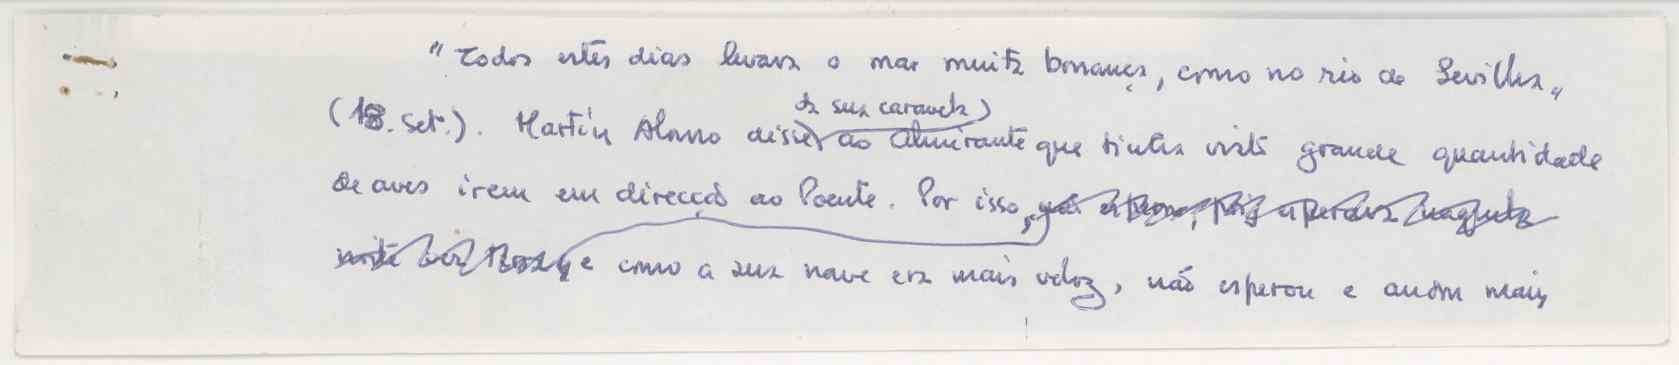 "Todos estes dias levara o mar muita bonança, como no rio de Sevilha"
(18. Set.). Martín Alonso disse, da sua caravela, ao Almirante que tinha visto grande quantidade
de aves irem em direcção ao Poente. Por isso,
e como a sua nave era mais veloz, não esperou e andou mais